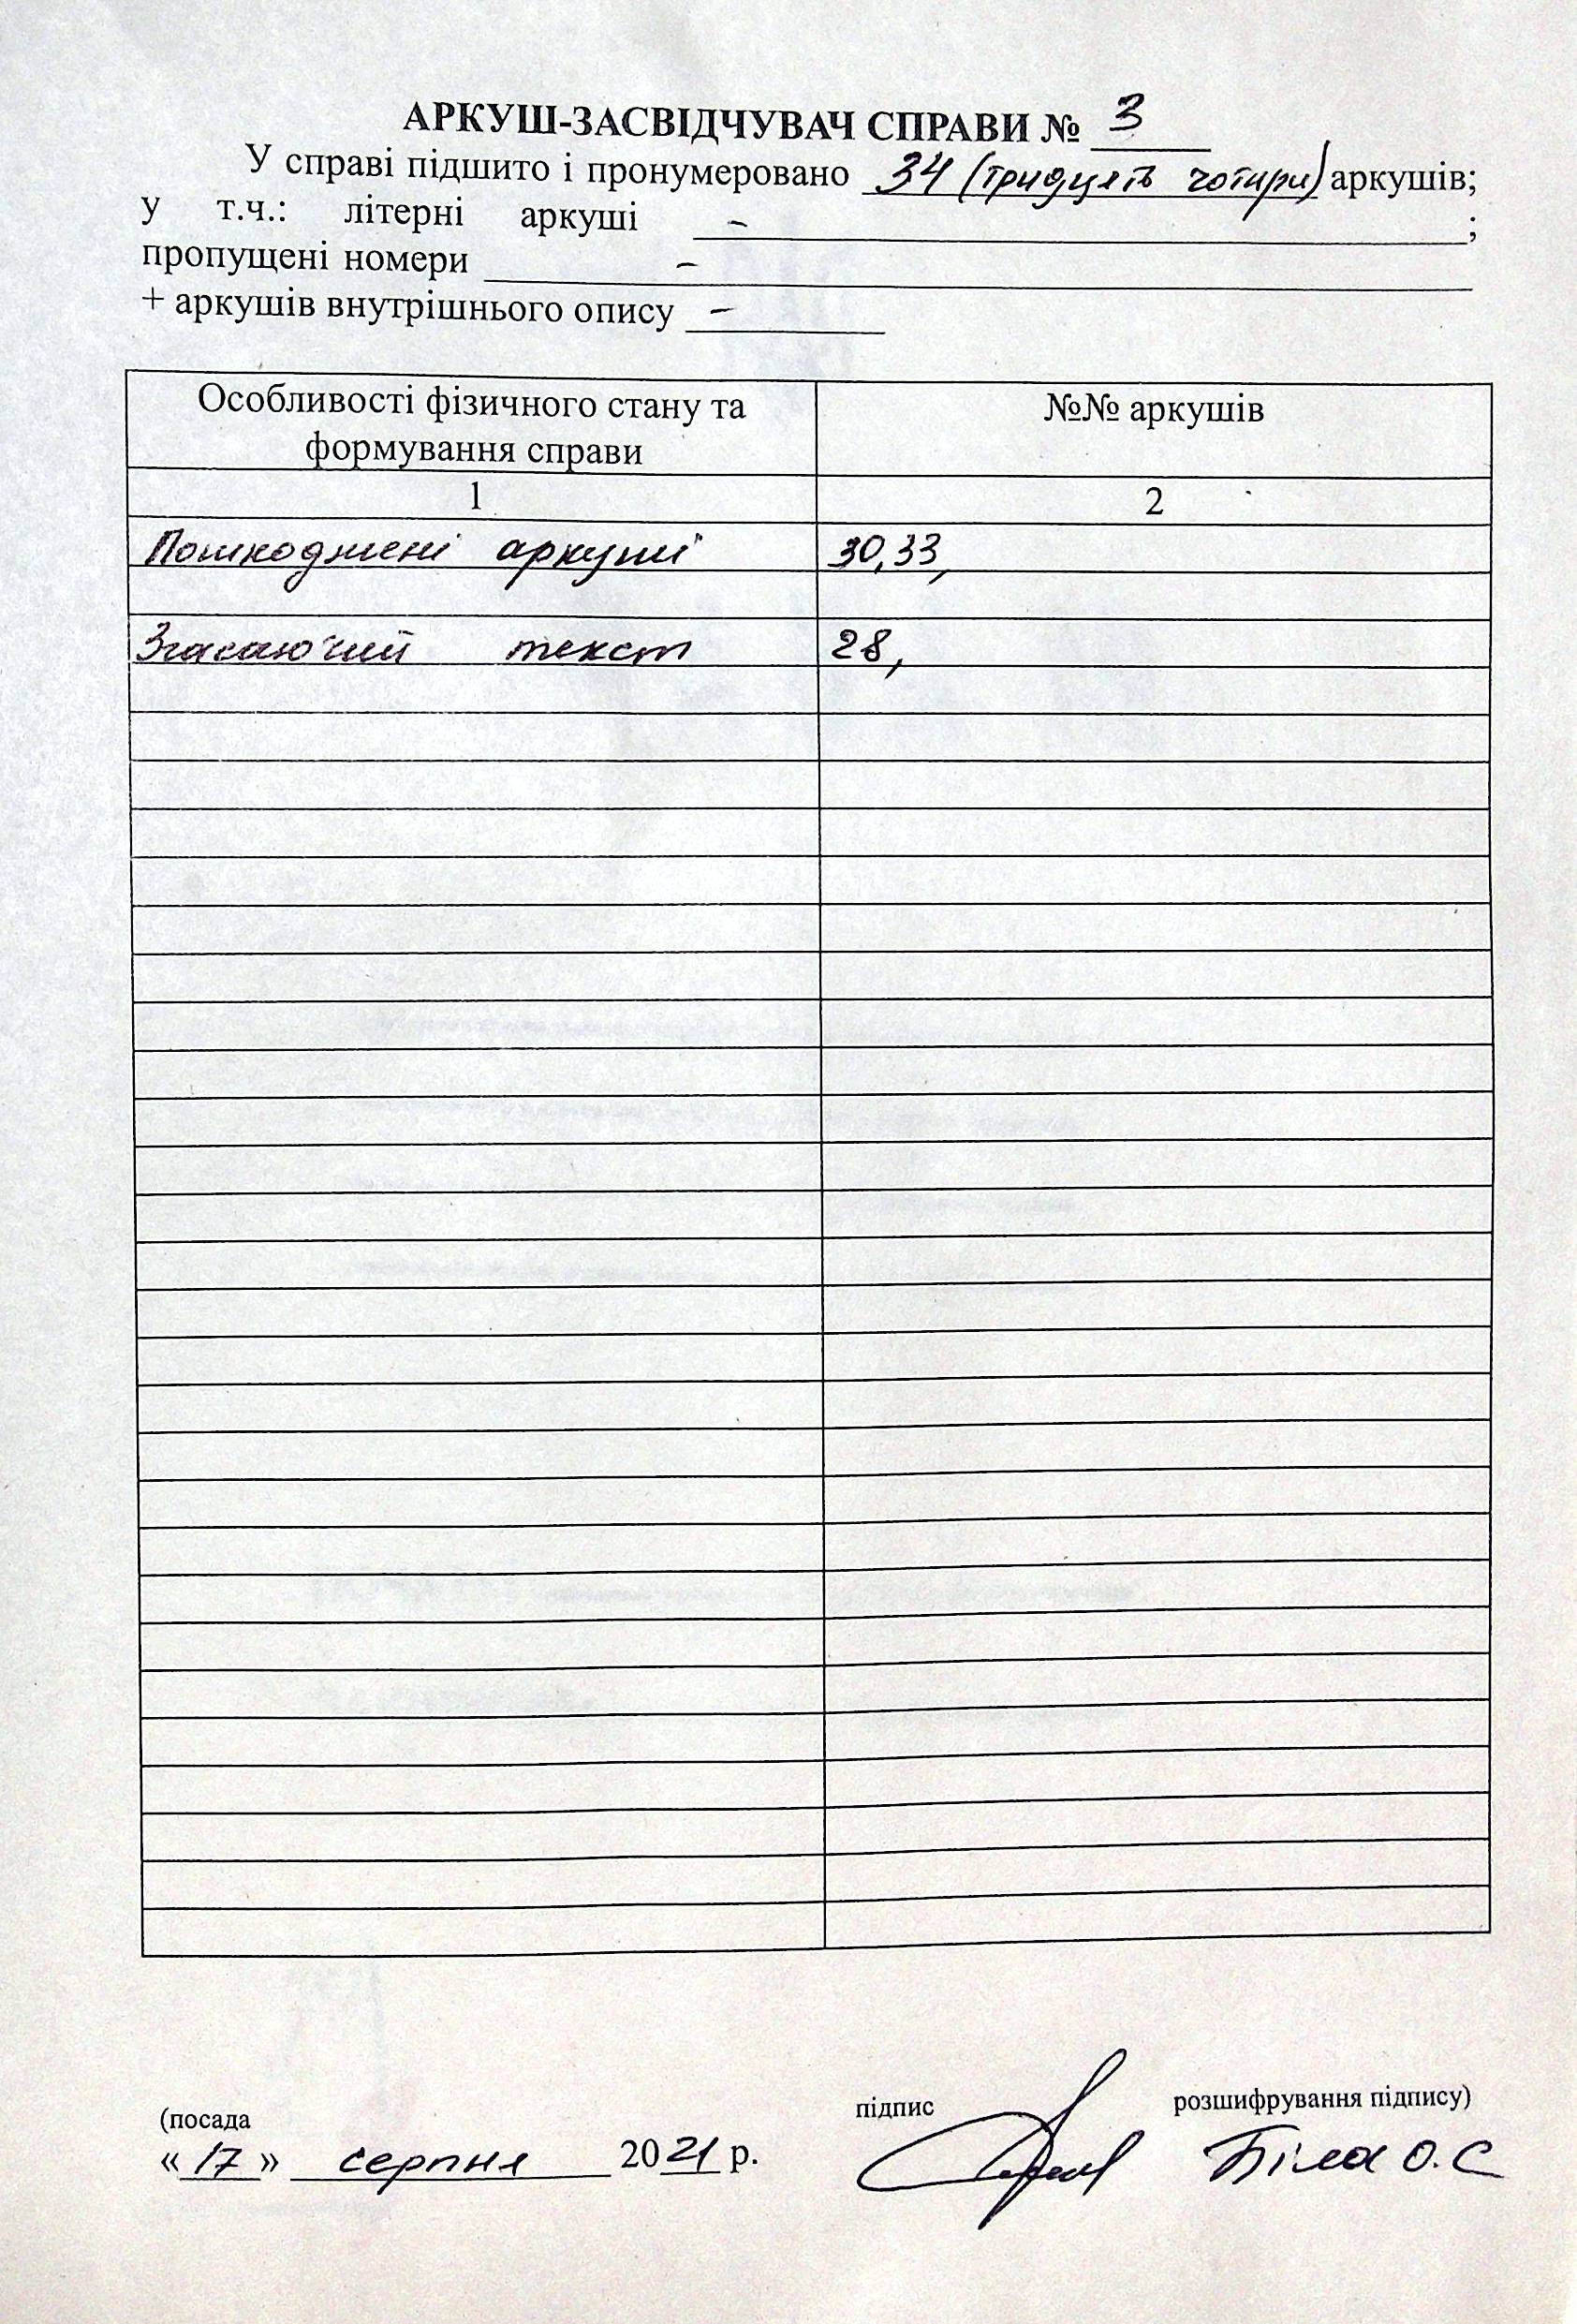 АРКУШ-ЗАСВІДЧУВАЧ СПРАВИ № 3
У справі підшито і пронумеровано 34 (тридцять чотири) аркушів;
у т.ч.: літерні аркуші - ;
пропущені номери -
+ аркушів внутрішнього опису -
Особливості фізичного стану та №№ аркушів
формування справи
1 2
Пошкоджені аркуші 30,33,
Згасаючий текст 28,
(посада підпис розшифрування підпису)
«17» серпня 2021 р. Біла О.С